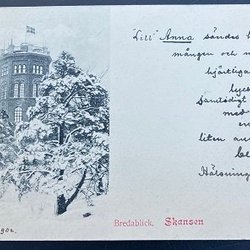 Lill' Anna sändes h
mången och m
hjärtliga
lyck
Samtidigt
med
en
liten an
Hälsning
Bredablick. Skansen
1902.